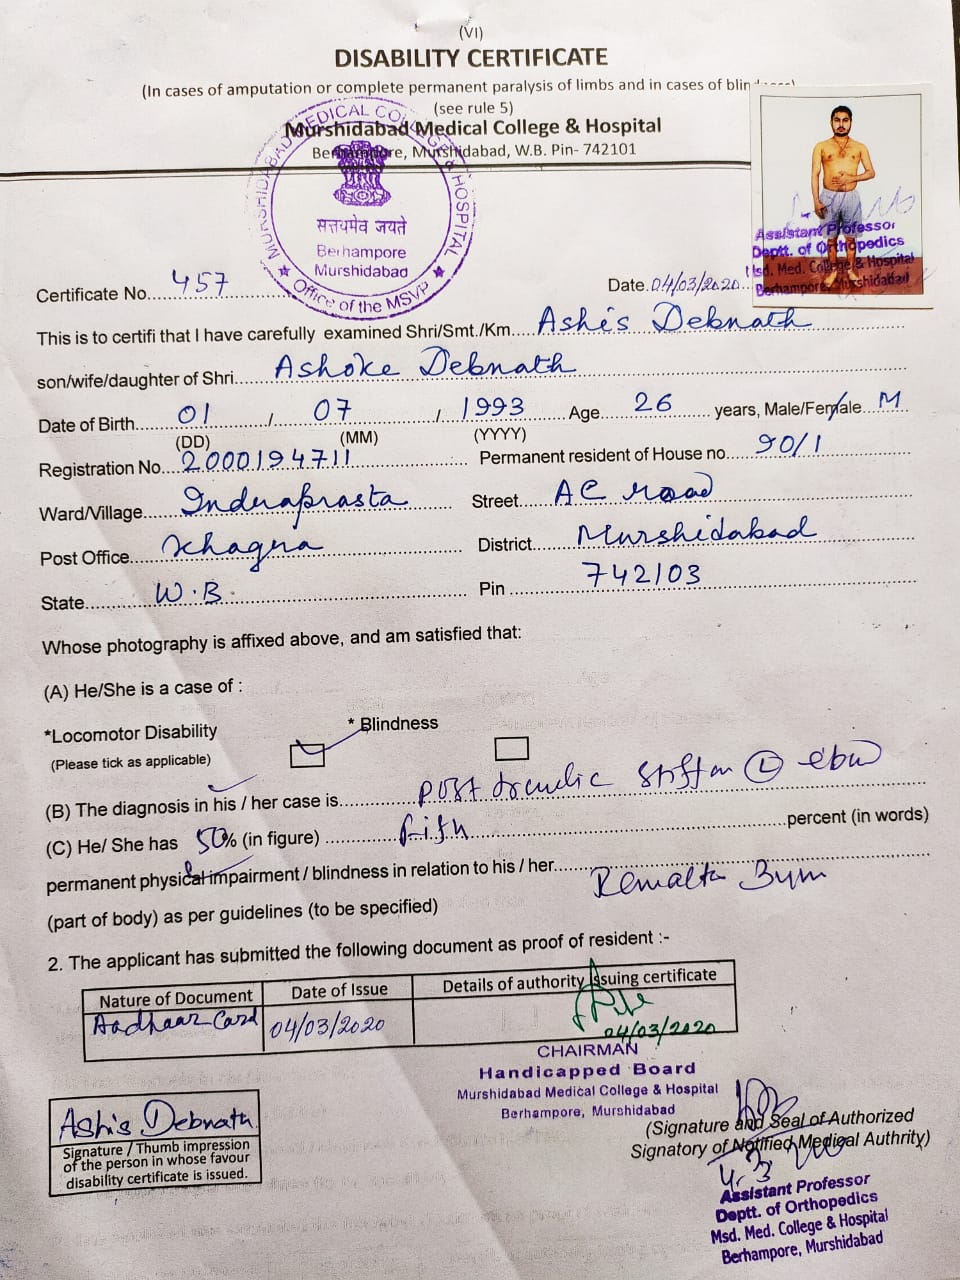 (VI)
DISABILITY CERTIFICATE
(In cases of amputation or complete permanent paralysis of limbs and in cases of
(see rule 5)
Murshidabad Medical College & Hospital
Berhampore, Murshidabad, W.B. Pin- 742101
MURSHIDABAD MEDICAL COLLEGE & HOSPITAL
सत्यमेव जयते
Berhampore
Murshidabad
Office of the MSVP
Assistant Professor
Deptt. of Orthopedics
Msd. Med. College & Hospital
Berhampore, Murshidabad
Certificate No. 457 Date. 04/03/2020
This is to certifi that I have carefully examined Shri/Smt./Km. Ashis Debnath
son/wife/daughter of Shri. Ashoke Debnath
Date of Birth. 01 / 07 / 1993 Age 26 years, Male/Female. M
(DD) (MM) (YYYY)
Registration No. 2000194711 Permanent resident of House no. 90/1
Ward/Village. Indraprasta Street. AC road
Post Office. Khagra District. Murshidabad
State. W.B. Pin 742103
Whose photography is affixed above, and am satisfied that:
(A) He/She is a case of :
*Locomotor Disability * Blindness
(Please tick as applicable)
(B) The diagnosis in his / her case is. post L
(C) He/ She has 50% (in figure) percent (in words)
permanent physical impairment / blindness in relation to his / her.
(part of body) as per guidelines (to be specified)
2. The applicant has submitted the following document as proof of resident :-
Nature of Document Date of Issue Details of authority issuing certificate
Aadhaar Card 04/03/2020
04/03/2020
CHAIRMAN
Handicapped Board
Murshidabad Medical College & Hospital
Berhampore, Murshidabad
Ashis Debnath
Signature / Thumb impression
of the person in whose favour
disability certificate is issued.
(Signature and Seal of Authorized
Signatory of Notified Medical Authrity)
4.3
Assistant Professor
Deptt. of Orthopedics
Msd. Med. College & Hospital
Berhampore, Murshidabad